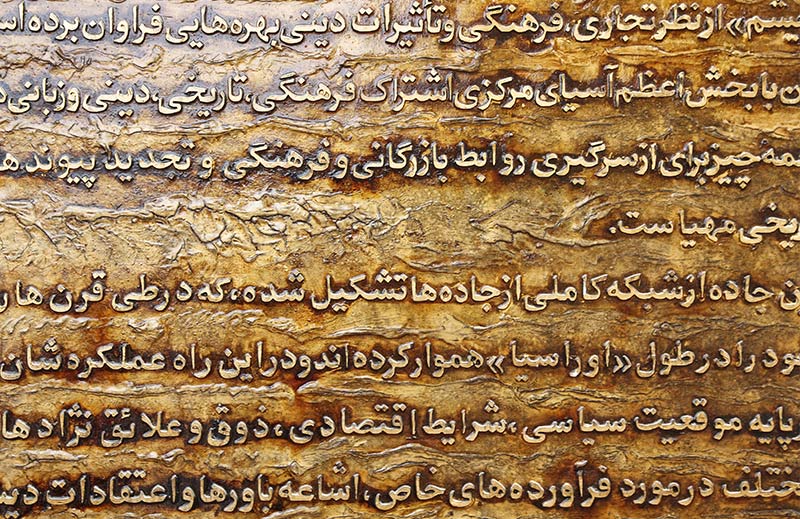 یشم» از نظر تجاری، فرهنگی و تأثیرات دینی بهره‌هایی فراوان برده اس
ن با بخش اعظم آسیای مرکزی اشتراک فرهنگی، تاریخی، دینی و زبانی د
مه چیز برای از سرگیری روابط بازرگانی و فرهنگی و تجدید پیوندها
ریخی مهیا ست.
ن جاده از شبکه کاملی از جاده‌ها تشکیل شده، که در طی قرن ها ر
ود را در طول «اوراسیا» هموار کرده اند و در این راه عملکره شان
ر پایه موقعیت سیاسی، شرایط اقتصادی، ذوق و علائق نژادها
ختلف در مورد فرآورده‌های خاص، اشاعه باورها و اعتقادات دین